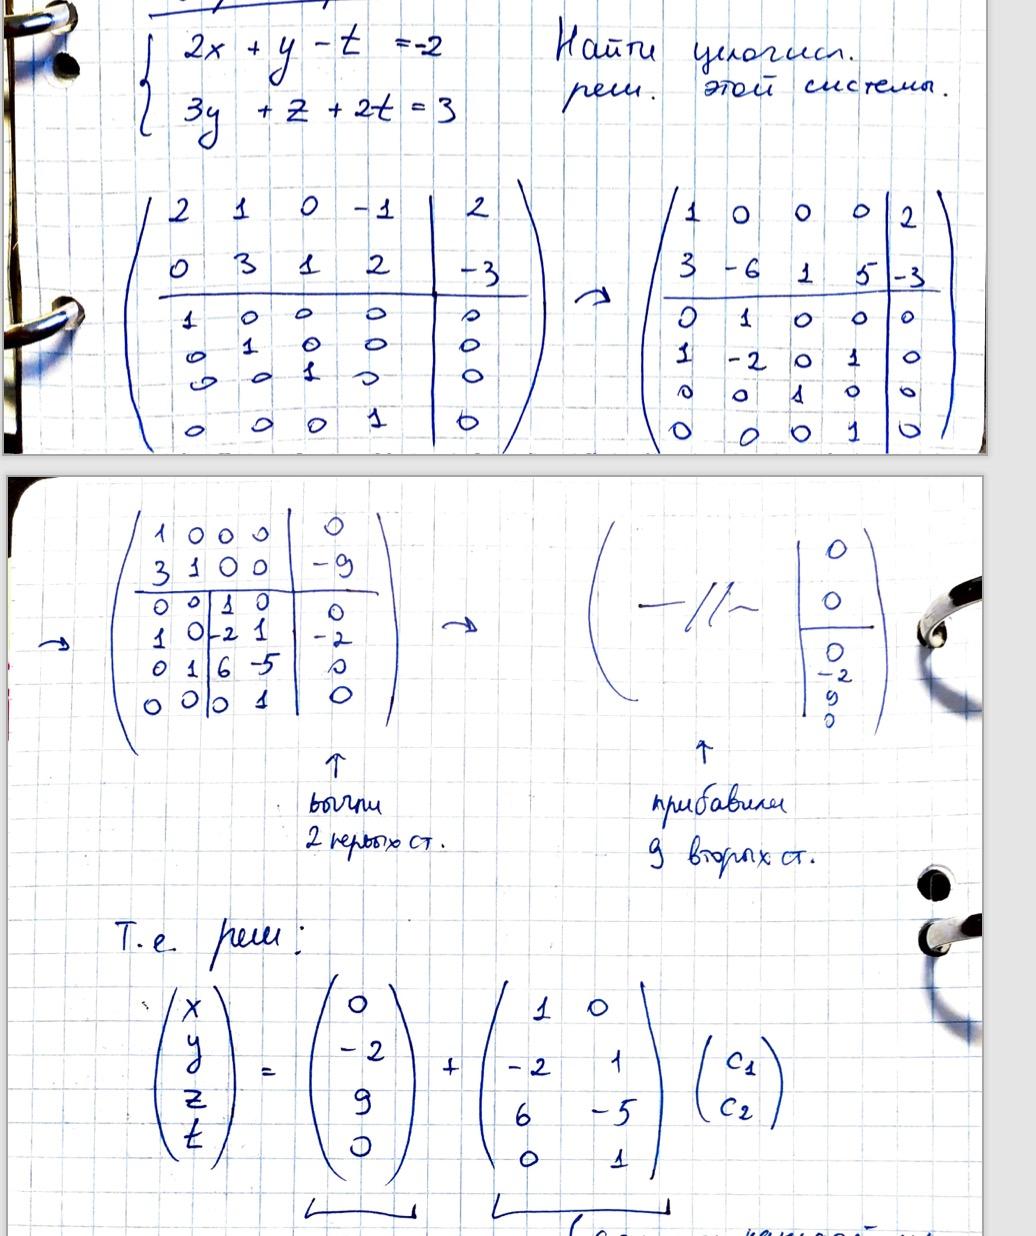 2x + y - t = -2
3y + z + 2t = 3
Найти целочисл.
реш. этой системы.
2 1 0 -1 | 2
0 3 1 2 | -3
1 0 0 0 | 0
0 1 0 0 | 0
0 0 1 0 | 0
0 0 0 1 | 0
→
1 0 0 0 | 2
3 -6 1 5 | -3
0 1 0 0 | 0
1 -2 0 1 | 0
0 0 1 0 | 0
0 0 0 1 | 0
→
1 0 0 0 | 0
3 1 0 0 | -9
0 0 1 0 | 0
1 0 -2 1 | -2
0 1 6 -5 | 0
0 0 0 1 | 0
→
—//—
0
0
0
-2
9
0
↑
вычли
2 первых ст.
↑
прибавили
9 вторых ст.
Т.е. реш:
x
y
z
t
=
0
-2
9
0
+
1 0
-2 1
6 -5
0 1
C1
C2